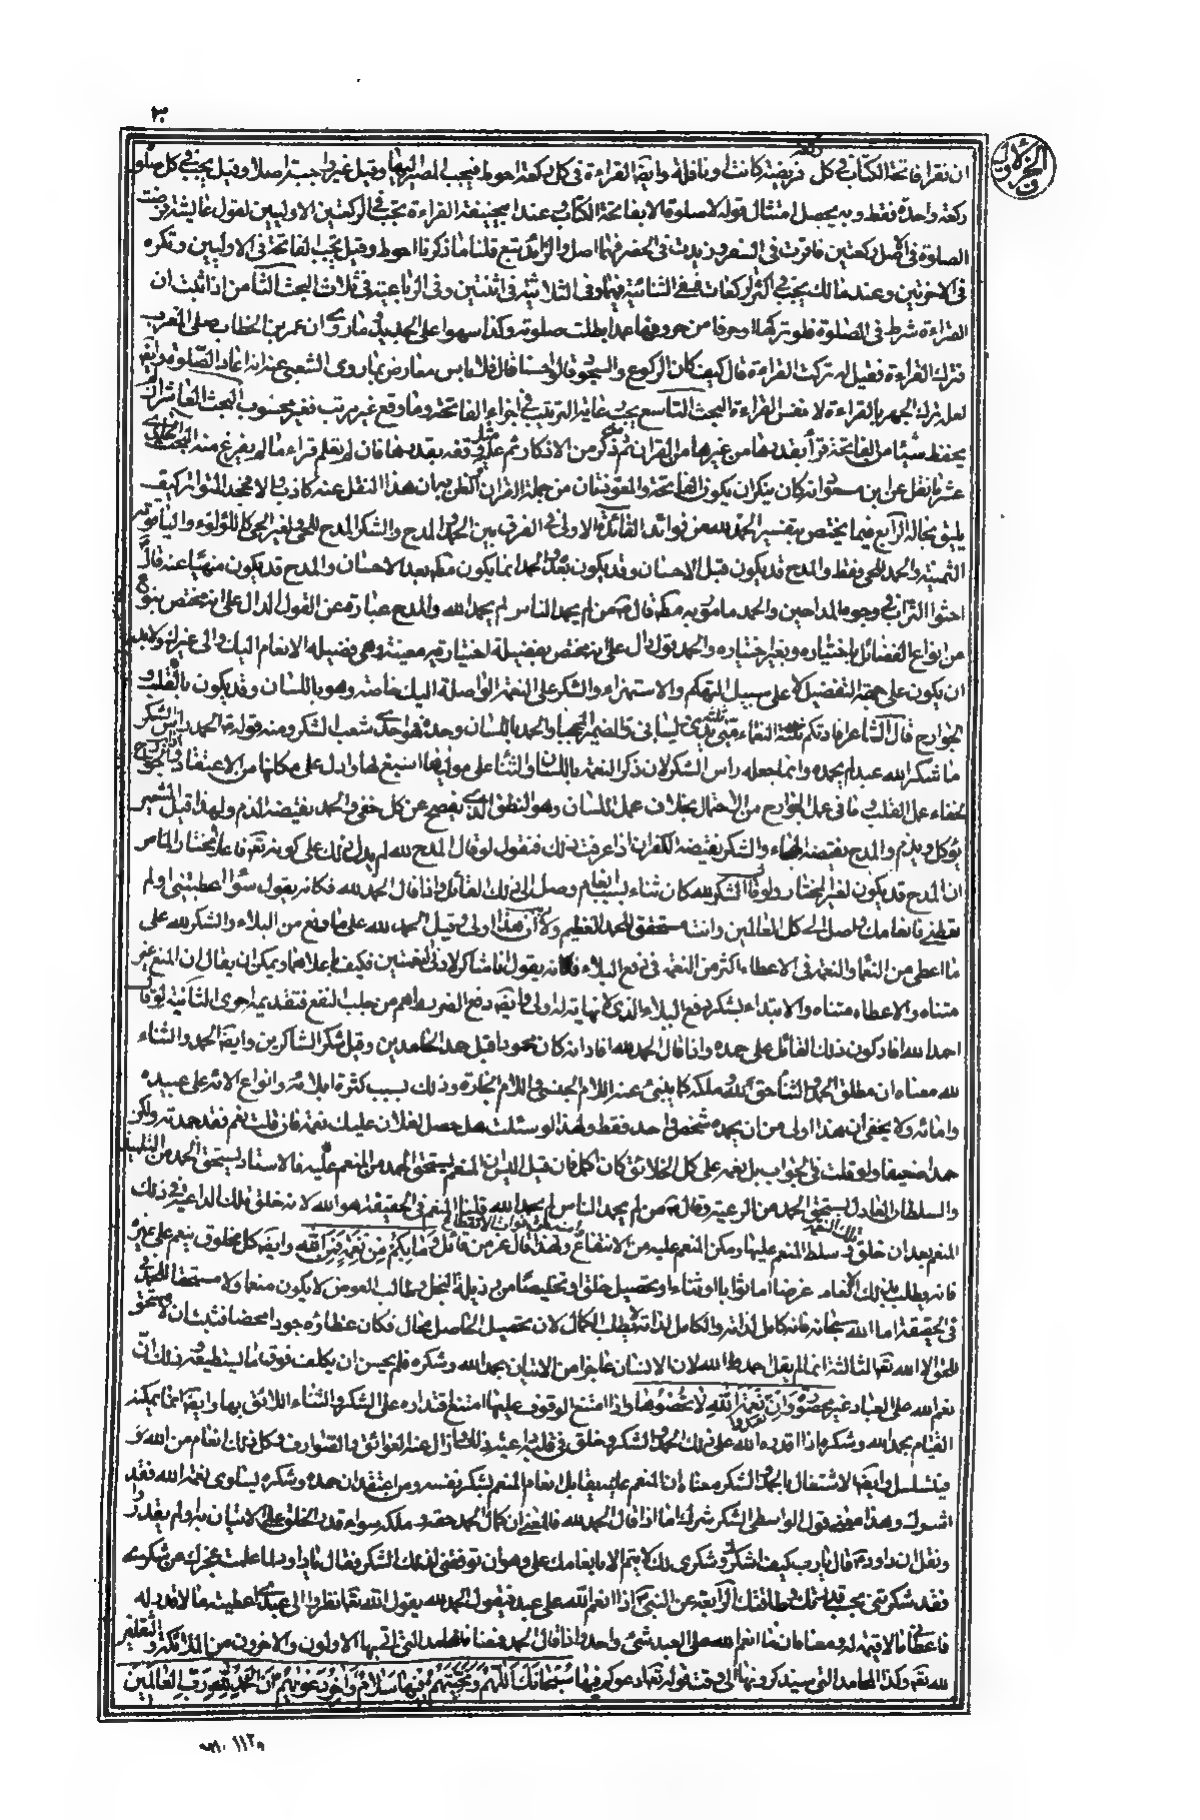 ٣
الجزء الاول
ان تقرأ فاتحة الكتاب فى كل ركعة فريضة كانت او نافلة وايضا القراءة فى كل ركعة احوط فيجب المصير اليها وقيل غير واجبة اصلا وقيل يجب فى كل صلوة
ركعة واحدة فقط وبه يحصل امتثال قوله لا صلوة الا بفاتحة الكتاب وعند ابى حنيفة القراءة تجب فى الركعتين الاوليين لقول عائشة فرضت
الصلوة فى الاصل ركعتين فاقرت فى السفر وزيدت فى الحضر فهما اصل والزائد تبع قلنا ما ذكرنا احوط وقيل تجب الفاتحة فى الاوليين وتكره
فى الاخريين وعند مالك يجب فى اكثر الركعات ففى الثنائية فيهما وفى الثلاثية فى اثنتين وفى الرباعية فى ثلاث البحث الثامن اذا ثبت ان
القراءة شرط فى الصلوة فلو تركها او حرفا من حروفها عمدا بطلت صلوته وكذا سهوا على الجديد لما روى ان عمر بن الخطاب صلى المغرب
فترك القراءة فقيل له تركت القراءة قال كيف كان الركوع والسجود قالوا حسنا قال فلا بأس معارض بما روى الشعبى عنه انه اعاد الصلوة وايضا
لعله ترك الجهر بالقراءة لا نفس القراءة البحث التاسع يجب رعاية الترتيب فى اجزاء الفاتحة وما وقع غير مرتب فغير محسوب البحث العاشر ان لم
يحفظ شيئا من الفاتحة قرأ بقدرها من غيرها من القرآن ثم ذكر من الاذكار ثم عليه وقفة بقدرها فان لم يتعلم قراءة ما لم يفرغ منه البحث الحادى
عشر ما نقل عن ابن مسعود انه كان ينكر ان يكون الفاتحة والمعوذتان من جملة القرآن الظن به ان هذا النقل عنه كاذب والا فجحد المتواتر كيف
يليق بحاله الرابع فيما يختص بتفسير الحمد لله من فوائد الفائدة الاولى فى الفرق بين الحمد والمدح والشكر المدح للحى ولغير الحى كاللؤلؤة والياقوتة
الثمينة والحمد للحى فقط والمدح قد يكون قبل الاحسان وقد يكون بعده والحمد انما يكون بعد الاحسان والمدح قد يكون منهيا عنه قال
احثوا التراب فى وجوه المداحين والحمد مامور به مطلقا قال من لم يحمد الناس لم يحمد الله والمدح عبارة عن القول الدال على انه مختص بنوع
من انواع الفضائل باختياره وبغير اختياره والحمد قول دال على انه مختص بفضيلة اختيارية معينة وهى فضيلة الانعام اليك والى غيرك ولا بد
ان يكون على جهة التفضيل لا على سبيل التهكم والاستهزاء والشكر على النعمة الواصلة اليك خاصة وهو باللسان وقد يكون بالقلب و
الجوارح قال الشاعر افادتكم النعماء منى ثلاثة يدى ولسانى والضمير المحجبا والحمد باللسان وحده فهو احدى شعب الشكر ومنه قوله الحمد رأس الشكر
ما شكر الله عبد لم يحمده وانما جعله رأس الشكر لان ذكر النعمة باللسان والثناء على موليها اشيع لها وادل على مكانها من الاعتقاد وادآب الجوارح
لخفاء عمل القلب وما فى عمل الجوارح من الاحتمال بخلاف عمل اللسان وهو النطق الذى يفصح عن كل خفى والحمد نقيضه الذم ولهذا قيل الشعير
يؤكل ويذم والمدح نقيضه الهجاء والشكر نقيضه الكفران اذا عرفت ذلك فنقول لو قال المدح لله لم يدل ذلك على كونه تعالى فاعلا مختارا لما مر
ان المدح قد يكون لغير المختار ولو قال الشكر لله كان ثناء بسبب انعام وصل الى ذلك القائل واذا قال الحمد لله فكانه يقول سواء اعطيتنى او لم
تعطنى فانعامك واصل الى كل العالمين وانت مستحق للحمد العظيم ولا شك ان هذا اولى وقيل الحمد لله على ما دفع من البلاء والشكر لله على
ما اعطى من النعماء والنعمة فى الاعطاء اكثر من النعمة فى دفع البلاء فكانه يقول انا شاكر لادنى النعمتين فكيف لاعلاهما ويمكن ان يقال ان المنع غير
متناه والاعطاء متناه والابتداء بشكر دفع البلاء الذى لا نهاية له اولى وايضا دفع الضرر اهم من جلب النفع فتقديمه احرى الثانية لو قال
احمد الله افاد كون ذلك القائل على حمده واذا قال الحمد لله افاد انه كان محمودا قبل حمد الحامدين وقبل شكر الشاكرين وايضا الحمد والثناء
لله معناه ان مطلق الحمد والثناء حق لله وملكه كما ينبئ عنه اللام الجنسى واللام الجارة وذلك بسبب كثرة اياديه وانواع آلائه على عبيده
وامائه ولا يخفى ان هذا اولى من ان يحمده شخص واحد فقط ولهذا لو سئلت هل حصل لفلان عليك نعمة فان قلت نعم فقد حمدته ولكن
حمدا ضعيفا ولو قلت فى الجواب بل نعمه على كل الخلائق كان اكمل فان قيل اليس ان المنعم يستحق الحمد من المنعم عليه فالاستاذ يستحق الحمد من التلميذ
والسلطان العادل يستحق الحمد من الرعية وقال من لم يحمد الناس لم يحمد الله قلنا المنعم فى الحقيقة هو الله لانه خلق تلك الداعية فى ذلك
المنعم بعد ان خلق تلك النعمة وسلط المنعم عليها ومكن المنعم عليه من الانتفاع وآمنه فوات الانقطاع ولهذا قال عز من قائل وَمَا بِكُمْ مِنْ نِعْمَةٍ فَمِنَ اللّٰهِ وايضا كل مخلوق ينعم على غيره
فانه يطلب بذلك الانعام عوضا اما ثوابا او ثناء او تحصيل خلق او تخليصا من رذيلة البخل وطالب العوض لا يكون منعما ولا مستحقا للحمد
فى الحقيقة اما الله سبحانه فانه كامل لذاته والكامل لذاته لا يطلب الكمال لان تحصيل الحاصل محال فكان عطاؤه جودا محضا فثبت ان لا مستحق
للحمد الا الله تعالى الثالثة انما لم يقل احمد الله لان الانسان عاجز من الاتيان بحمد الله وشكره فلم يحسن ان يكلف فوق ما يستطيعه وذلك ان
نعم الله على العباد غير محصورة وَاِنْ تَعُدُّوا نِعْمَةَ اللّٰهِ لَا تُحْصُوهَا واذا امتنع الوقوف عليها امتنع اقتداره على الشكر والثناء اللائق بها وايضا انما يمكنه
القيام بحمد الله وشكره اذا اقدره الله على ذلك الحمد والشكر وخلق فى قلبه داعية ذلك وازال عنه العوائق والصوارف فكل ذلك انعام من الله تعالى
فيتسلسل وايضا الاشتغال بالحمد والشكر معناه ان المنعم عليه يقابل انعام المنعم بشكر نفسه ومن اعتقد ان حمده وشكره يساوى نعمة الله فقد
اشرك وهذا معنى قول الواسطى الشكر شرك اما اذا قال الحمد لله فالمعنى ان كمال الحمد حقه وملكه سواء قدر الخلق على الاتيان به او لم يقدروا
ونقل ان داود قال يا رب كيف اشكرك وشكرى لك لا يتم الا بانعامك على وهو ان توفقنى لذلك الشكر فقال يا داود لما علمت عجزك عن شكرى
فقد شكرتنى بحسب قدرتك وطاقتك الرابعة عن النبى اذا انعم الله على عبد فيقول الحمد لله يقول الله تعالى انظروا الى عبدى اعطيته ما لا قدر له
فاعطانى ما لا قيمة له ومعناه ان ما انعم الله على العبد شئ واحد واذا قال الحمد لله فمعناه المحامد التى اتى بها الاولون والآخرون من الملائكة والثقلين
لله تعالى وكذا المحامد التى سيذكرونها الى وقت قوله تعالى دعوٰىهم فيها سُبْحَانَكَ اللّٰهُمَّ وَتَحِيَّتُهُمْ فِيهَا سَلَامٌ وَاٰخِرُ دَعْوٰىهُمْ اَنِ الْحَمْدُ لِلّٰهِ رَبِّ الْعَالَمِينَ